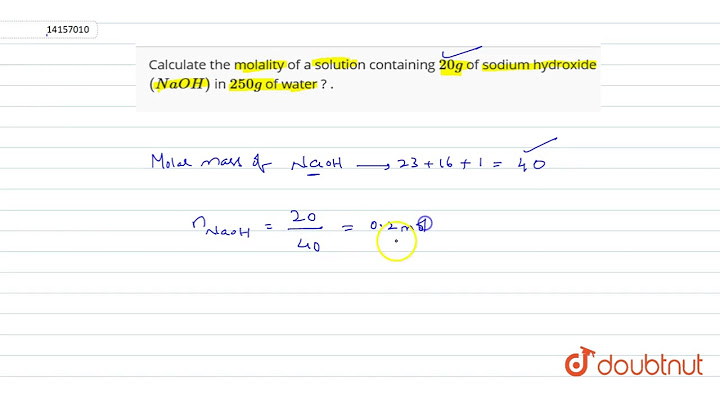 14157010
Calculate the molality of a solution containing 20g of sodium hydroxide
(NaOH) in 250g of water ? .
Molar mass of NaOH → 23 + 16 + 1 = 40
n NaOH = 20/40 = 0.2 mol
doubtnut